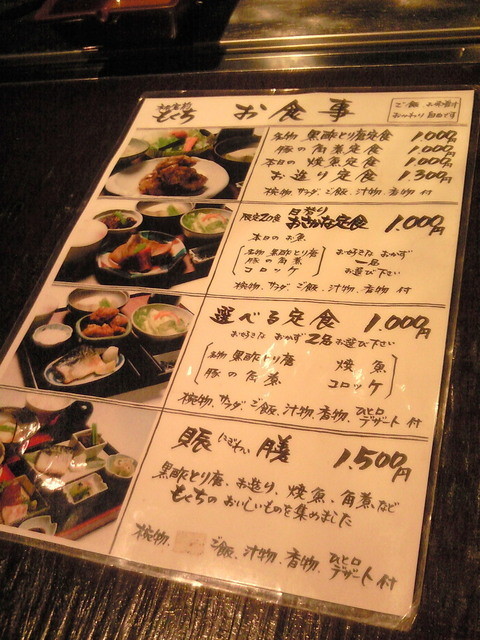 お食事
ご飯 お味噌汁
おかわり 自由です
名物 黒酢とり唐定食 1,000円
豚の角煮定食 1,000円
本日の 焼魚定食 1,000円
お造り定食 1,300円
椀物、サラダ、ご飯、汁物、香物 付
限定20食 日替り おさかな定食 1,000円
本日のお魚
名物 黒酢とり唐 お好きな おかず
豚の角煮 一品
コロッケ お選び下さい
椀物、サラダ、ご飯、汁物、香物 付
選べる定食 1,000円
お好きな おかず 2品 お選び下さい
名物 黒酢とり唐 焼魚
豚の角煮 コロッケ
椀物、サラダ、ご飯、汁物、香物、ひと口デザート 付
賑 にぎわい 膳 1,500円
黒酢とり唐、お造り、焼魚、角煮など
もくちの おいしいものを集めました
椀物、ご飯、汁物、香物、ひと口デザート 付